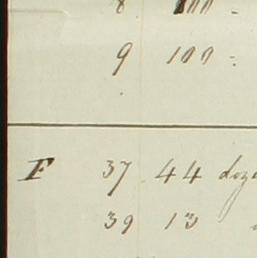 8 100 -
9 100 -
F 37 44 doz
39 13